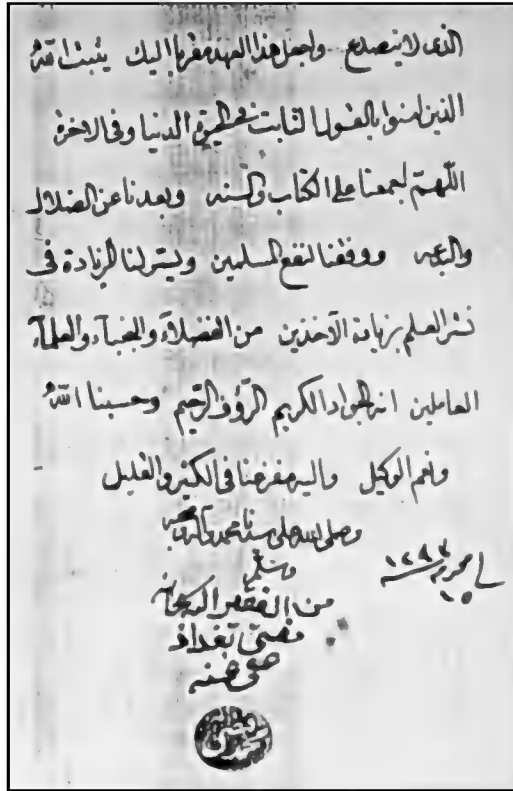 الذى لا ينصدع واجعل هذا العهد مقربا اليك يثبت الله
الذين امنوا بالقول الثابت فى الحيوة الدنيا وفى الاخرة
اللهم اجمعنا على الكتاب والسنه وبعدنا عن الضلال
والبدعه ووفقنا لنفع المسلمين ويسر لنا الزيادة فى
نشر العلم بزيادة الآخذين من الفضلآء والنجبآء والعلمآء
العاملين انه الجواد الكريم الرؤف الرحيم وحسبنا الله
ونعم الوكيل واليه مفزعنا فى الكثير والقليل
وصلى الله على سيدنا محمد وآله وصحبه
وسلم
فى محرم سنه ١٢٩٣
١٥
من الفقير اليه سبحانه
مفتى بغداد
عفى عنه